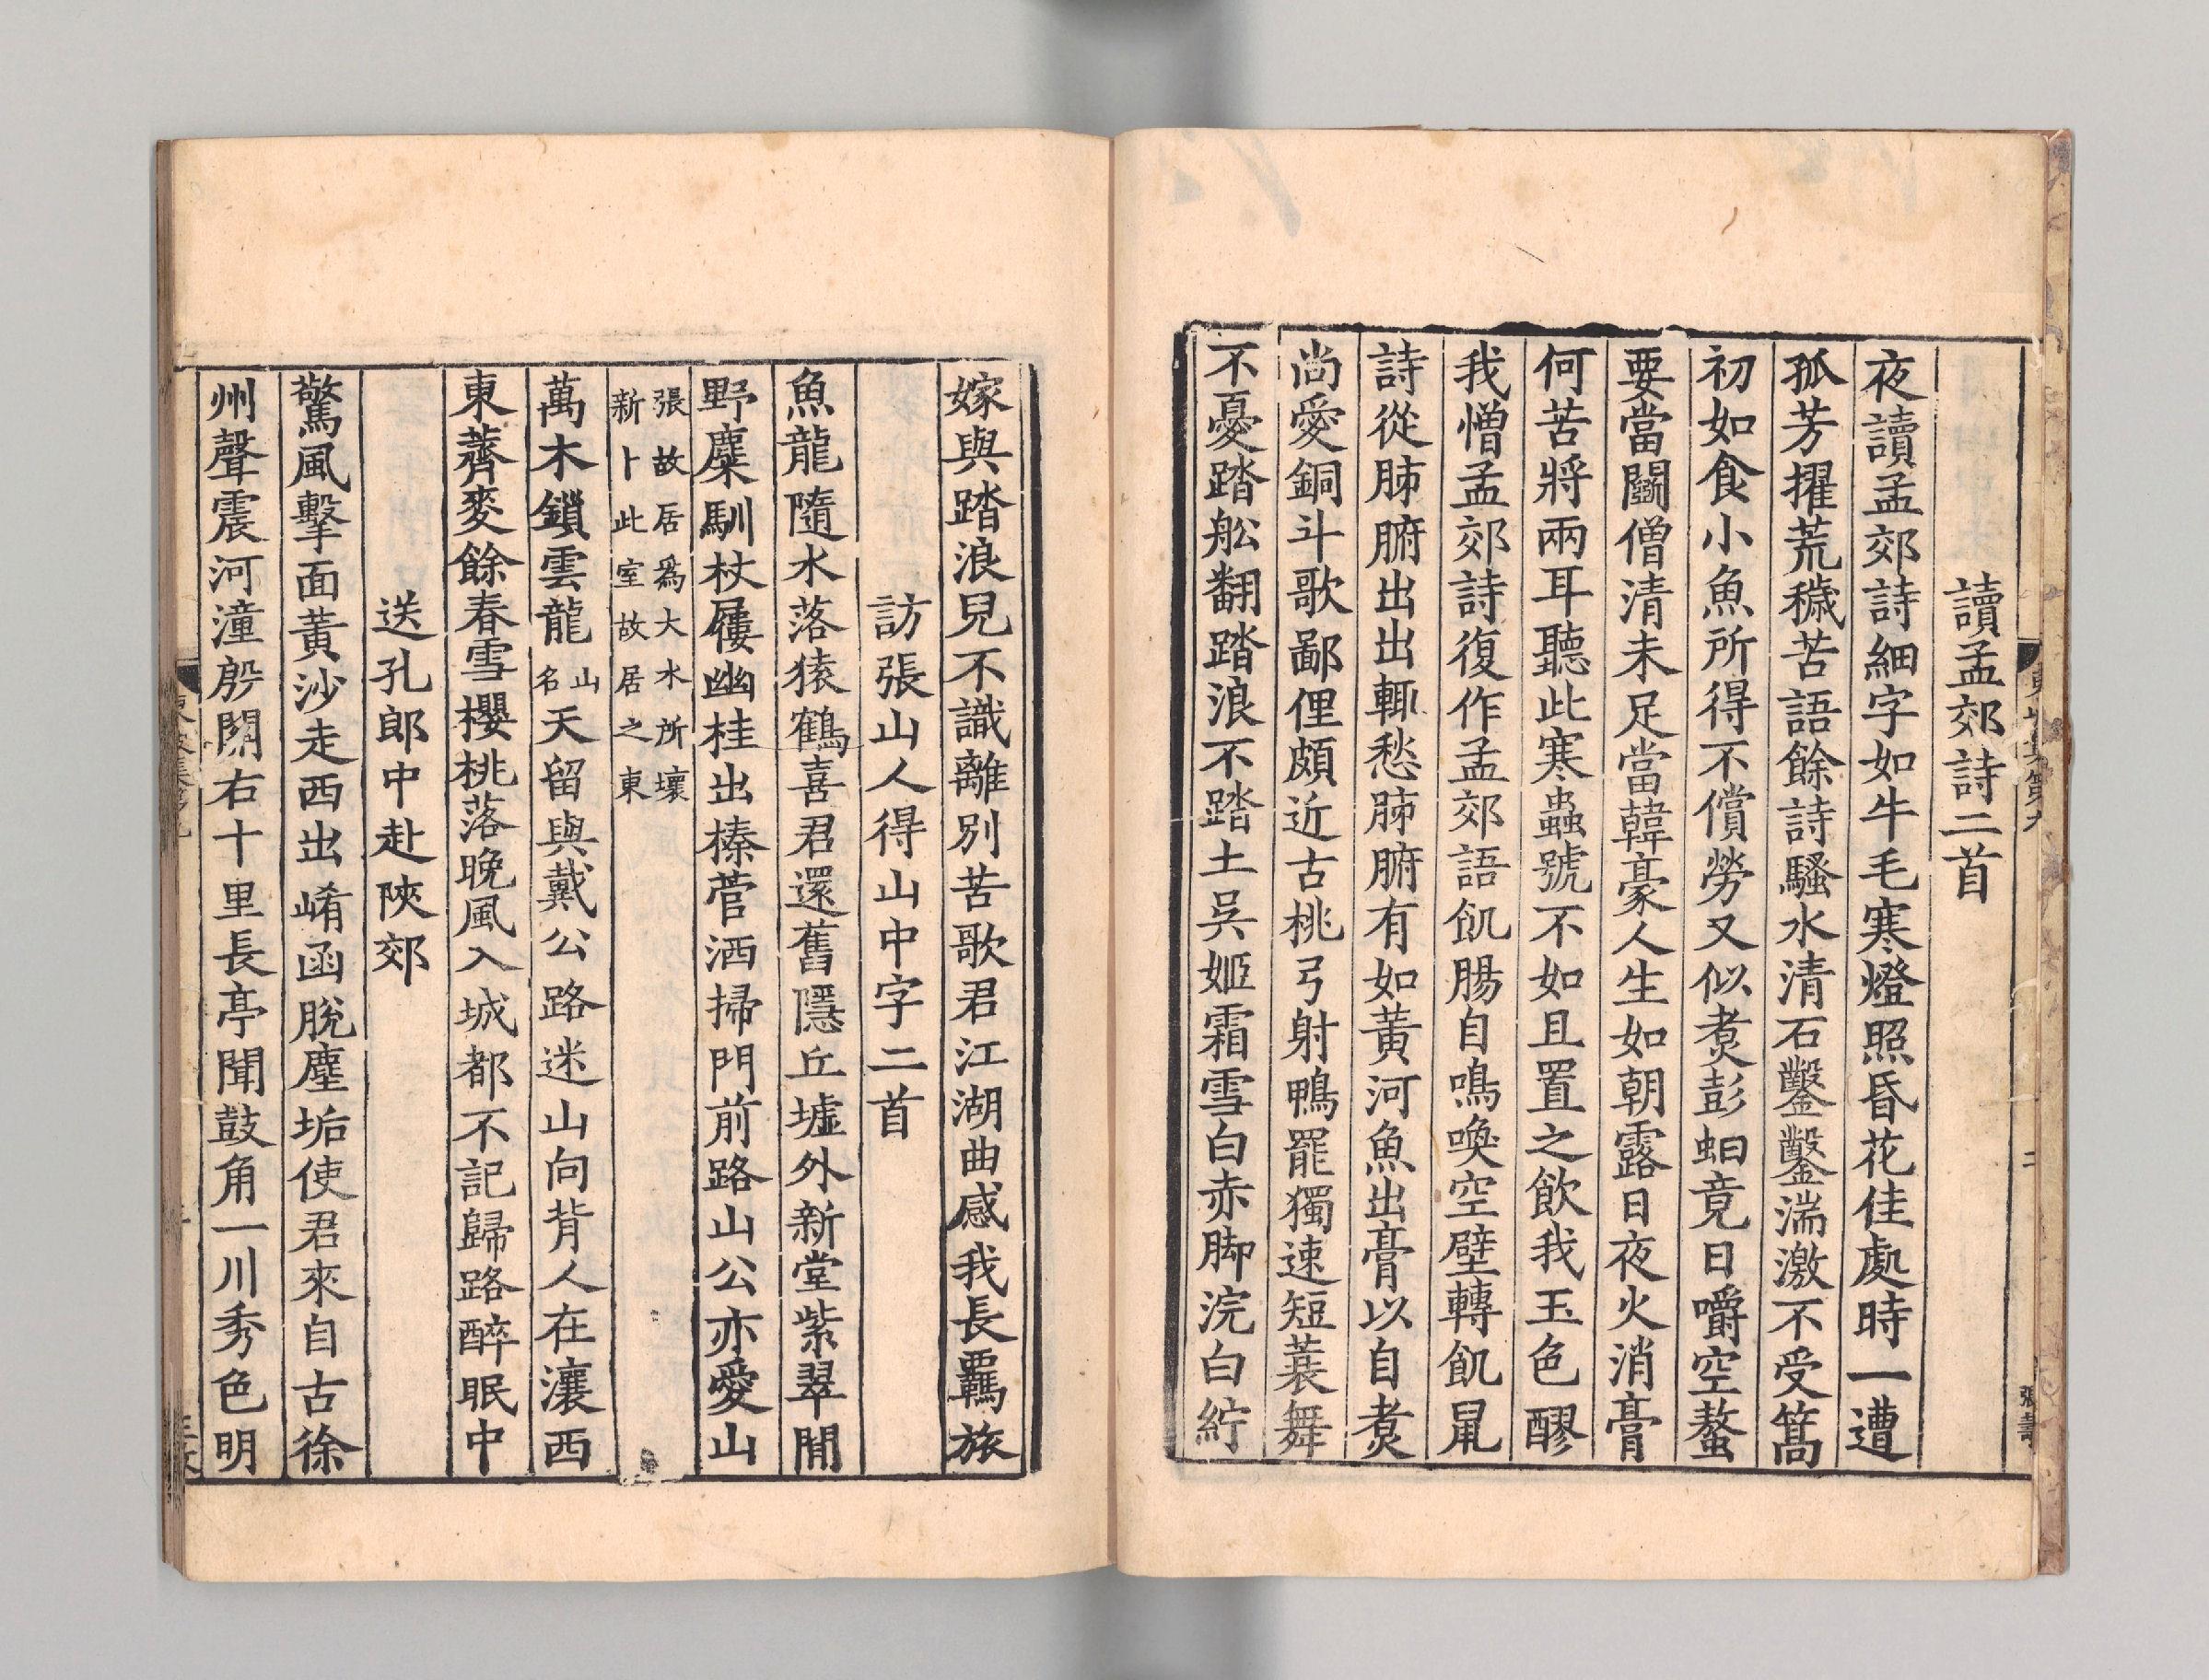 讀孟郊詩二首
夜讀孟郊詩細字如牛毛寒燈照昏花佳處時一遭
孤芳擢荒穢苦語餘詩騷水清石鑿鑿湍激不受篙
初如食小魚所得不償勞又似煑彭蚏竟日嚼空螯
要當鬭僧清未足當韓豪人生如朝露日夜火消膏
何苦將兩耳聽此寒蟲號不如且置之飲我玉色醪
我憎孟郊詩復作孟郊語飢腸自鳴喚空壁轉飢鼠
詩從肺腑出出輒愁肺腑有如黃河魚出膏以自煑
尚愛銅斗歌鄙俚頗近古桃弓射鴨罷獨速短蓑舞
不憂踏舩翻踏浪不踏土吳姬霜雪白赤脚浣白紵
嫁與踏浪兒不識離別苦歌君江湖曲感我長羈旅
訪張山人得山中字二首
魚龍隨水落猿鶴喜君還舊隱丘墟外新堂紫翠間
野麋馴杖屨幽桂出榛菅洒掃門前路山公亦愛山
張故居爲大水所壞
新卜此室故居之東
萬木鎖雲龍山名天留與戴公路迷山向背人在瀼西
東薺麥餘春雪櫻桃落晚風入城都不記歸路醉眠中
送孔郎中赴陝郊
驚風擊面黃沙走西出崤函脫塵垢使君來自古徐
州聲震河潼殷關右十里長亭聞鼓角一川秀色明